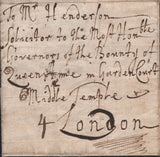 To Mr Henderson
Solicitor to the Most Honble
Governors of the Bounty of
Queen Anne in Garden Court
Middle Temple
4 London